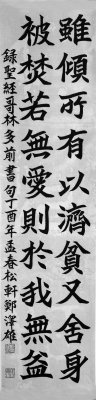 雖傾所有以濟貧又舍身
被焚若無愛則於我無益
錄聖經哥林多前書句丁酉年孟春松軒鄭澤雄